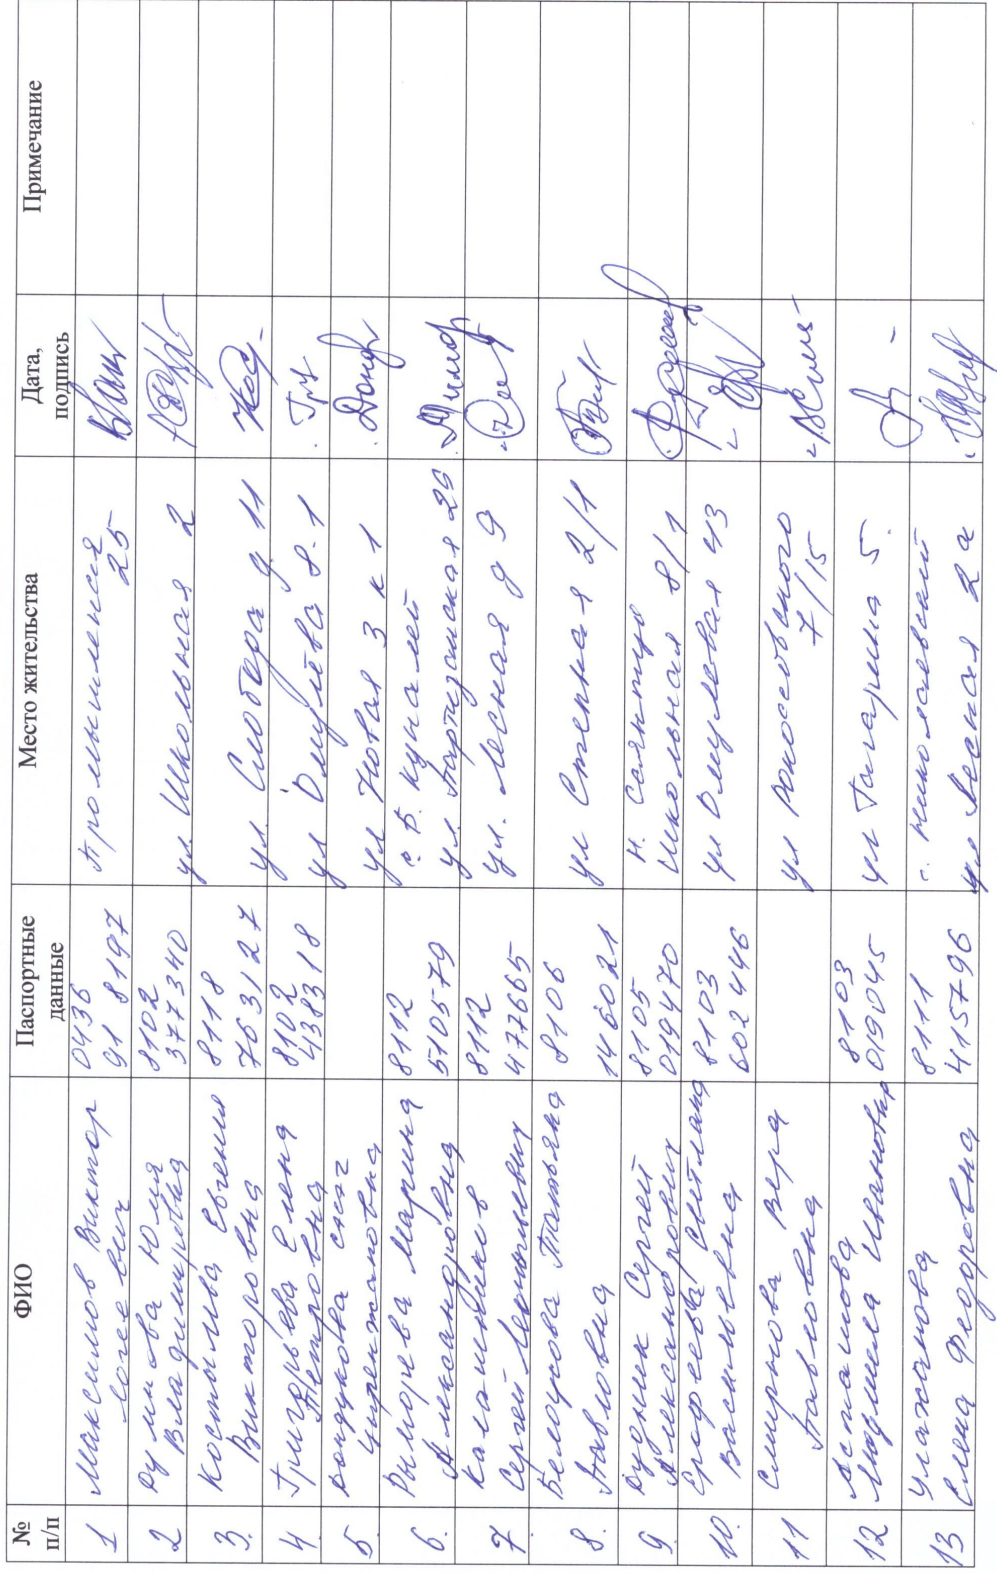 № п/п
ФИО
Паспортные данные
Место жительства
Дата, подпись
Примечание
1
Максимов Виктор
0436
918197
Промышленная
25
2
Владимировна
8102
377340
ул. Школьная 2
3.
Костылева Евгения
Викторовна
8118
763127
ул. Слобода д 11
4.
Григорьева Елена
Петровна
8102
438318
ул
8-1
5.
Дондукова
Цырендjаповна
ул Новая 3 к 1
6.
Марина
Александровна
8112
510579
с Б. Куналей
ул. Партизанская 29
7
Калашников
Сергей
8112
477665
ул. Лесная д 9
8.
Белоусова Татьяна
Павловна
8106
146021
ул Степная 2/1
9.
Дудник Сергей
Александрович
8105
019470
н. Саянтуй
Школьная 8/1
10.
Ерофеева Светлана
Васильевна
8103
602446
ул
43
11
Смирнова Вера
Павловна
ул
7/15
12
Асташова
Людмила Ивановна
8103
019045
ул Гагарина 5.
13
Улаханова
Елена Федоровна
8111
415796
с. Николаевский
ул Лесная 2а